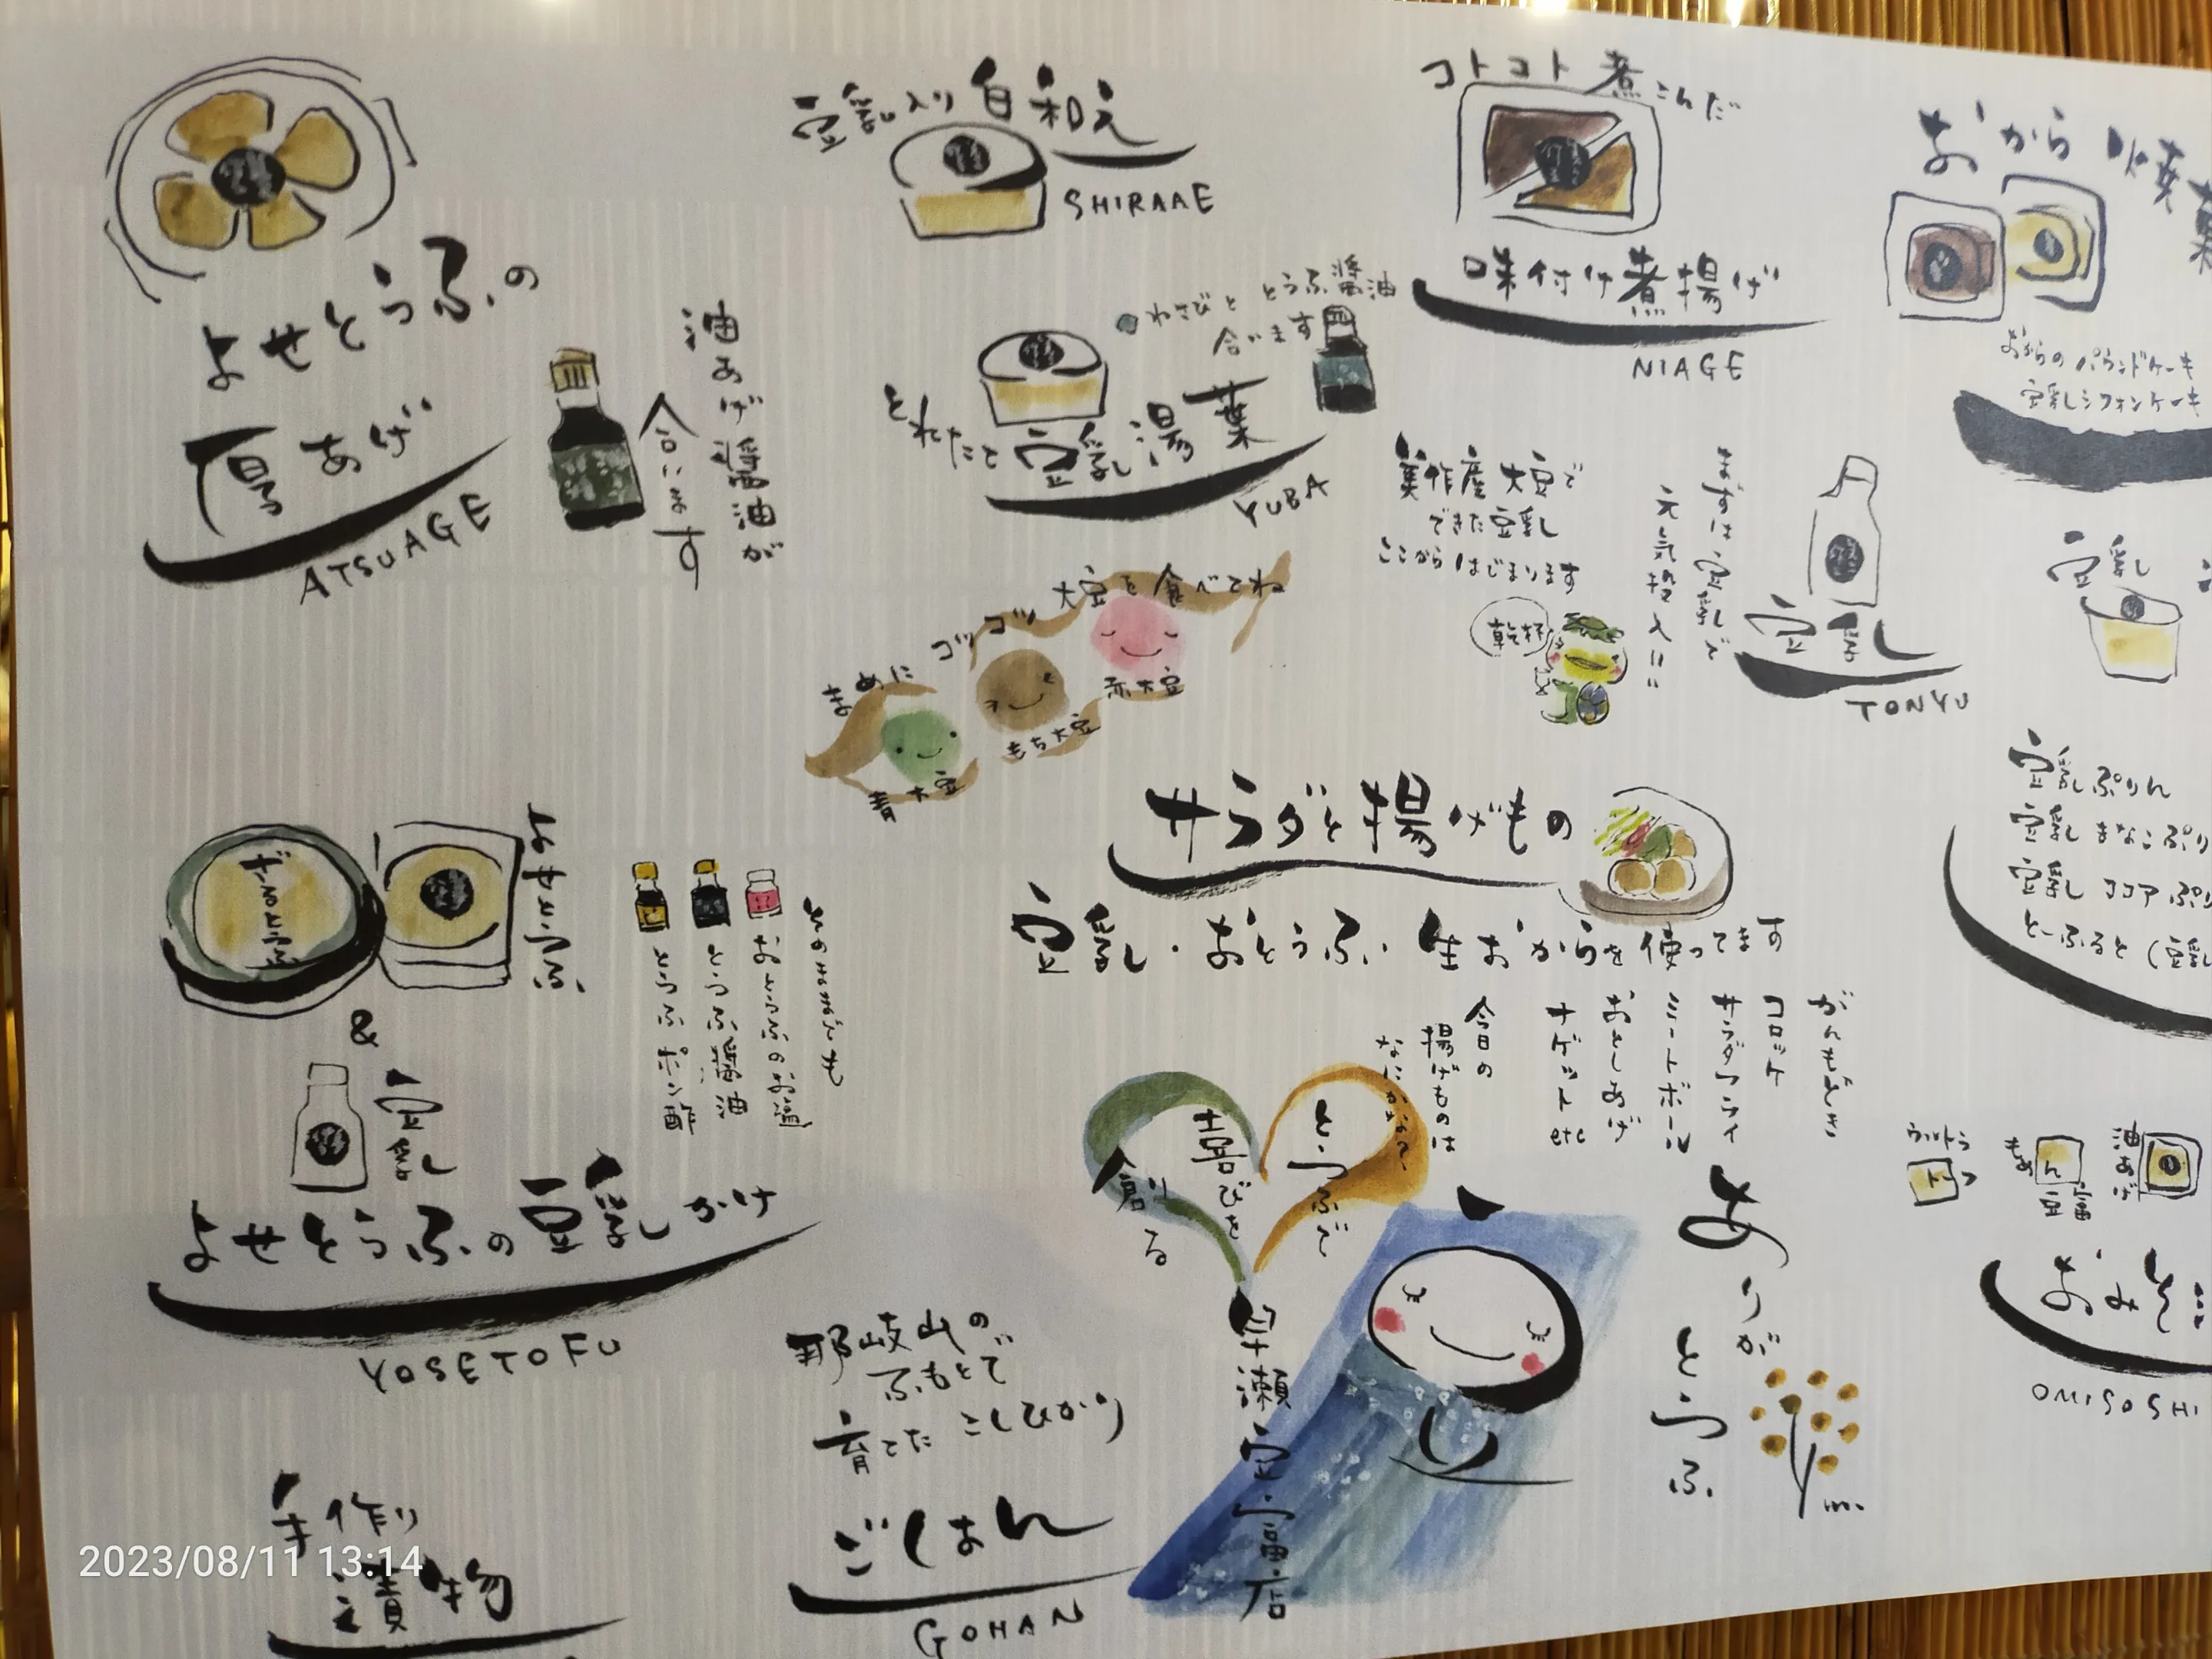 よせとうふの
厚あげ
ATSUAGE
油あげ醤油が
合います
豆乳入り白和え
SHIRAAE
わさびと とうふ醤油
合います
とれたて 豆乳湯葉
YUBA
コトコト 煮こんだ
味付け煮揚げ
NIAGE
おから 焼菓
おからのパウンドケーキ
豆乳シフォンケーキ
美作産大豆で
できた豆乳
ここからはじまります
乾杯
まずは豆乳で
元気投入!!
豆乳
TONYU
豆乳
まめに コツコツ 大豆を食べてね
青大豆
もち大豆
赤大豆
サラダと揚げもの
豆乳・おとうふ 生おからを使ってます
がんもどき
コロッケ
サラダフライ
ミートボール
おとしあげ
ナゲット etc
今日の
揚げものは
なにかな
豆乳ぷりん
豆乳 きなこぷり
豆乳 ココア ぷり
とーふると (豆乳
よせとうふ
&
豆乳
よせとうふの豆乳がけ
YOSETOFU
おとうふのお塩
とうふ醤油
とうふポン酢
とうふで
喜びを
創る
早瀬豆富店
ありが
とうふ
油あげ
豆富
OMISOSHI
那岐山の
ふもとで
育てた こしひかり
ごはん
GOHAN
手作り
漬物
2023/08/11 13:14